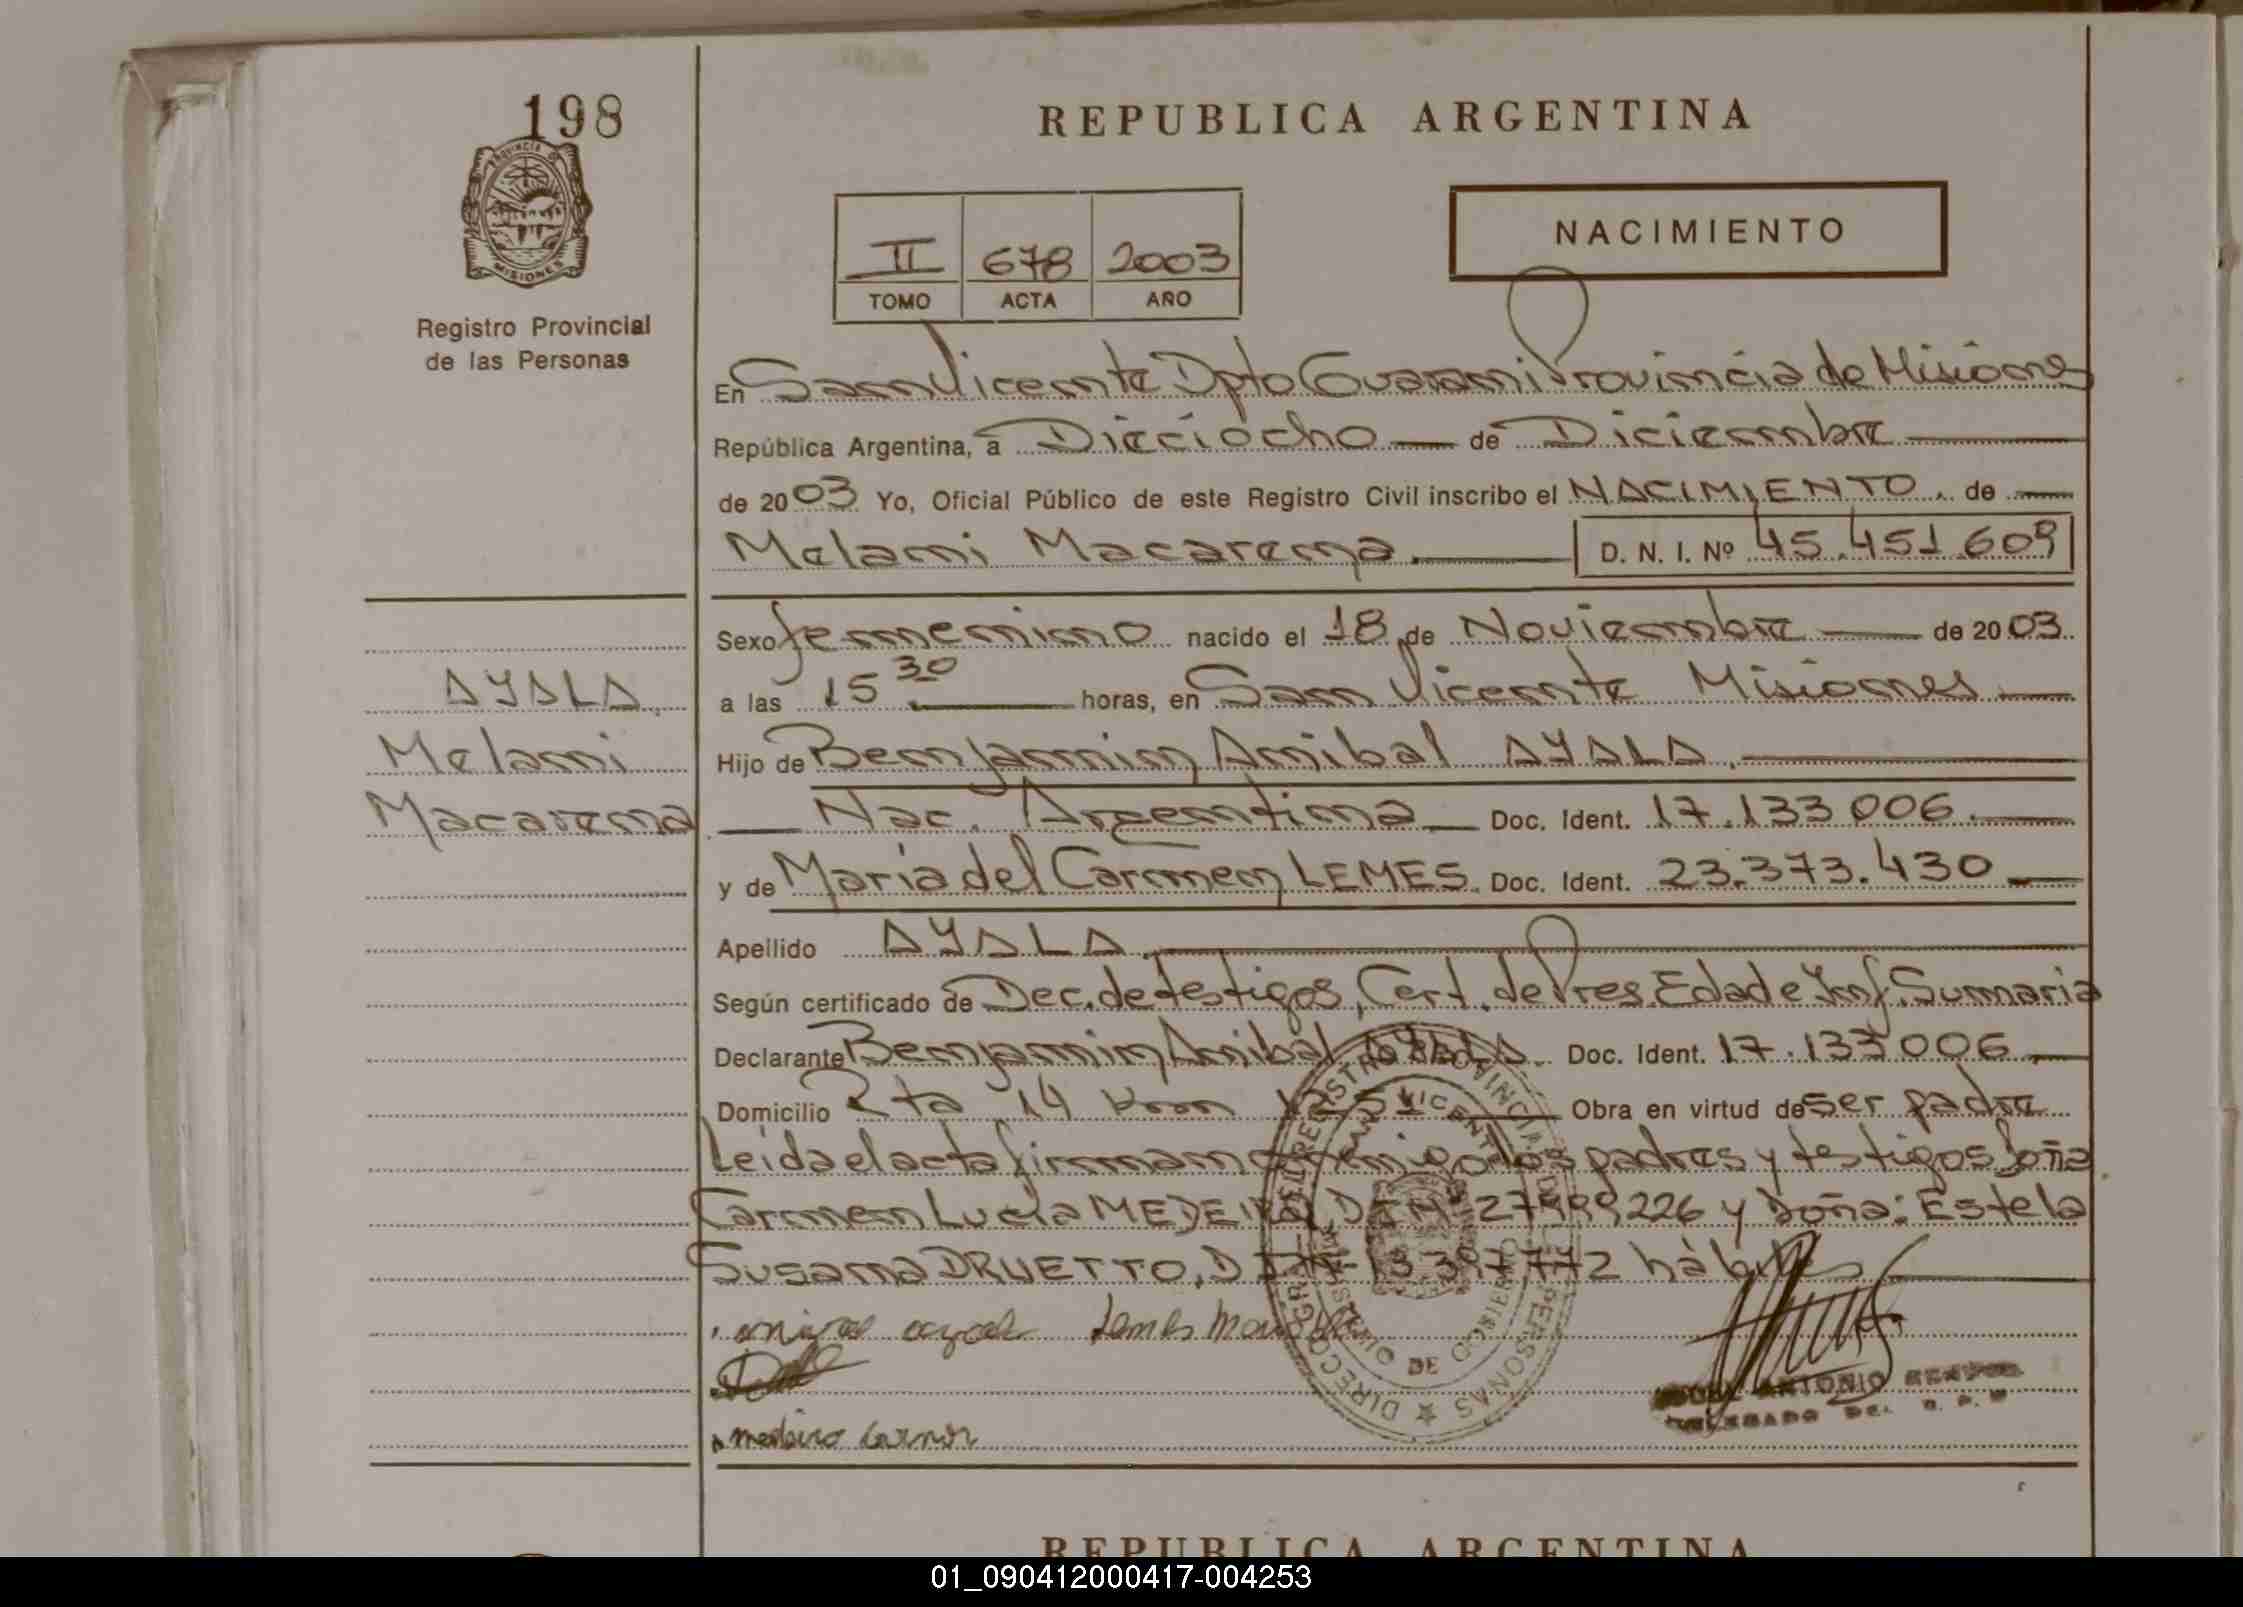 198
PROVINCIA DE
MISIONES
Registro Provincial
de las Personas
REPUBLICA ARGENTINA
II 678 2003
TOMO ACTA AÑO
NACIMIENTO
En San Vicente Dpto Guarani Provincia de Misiones
República Argentina, a Dieciocho de Diciembre
de 2003 Yo, Oficial Público de este Registro Civil inscribo el NACIMIENTO. de
Melani Macarena. D. N. I. Nº 45.451.609
Sexo femenino nacido el 18 de Noviembre de 2003
a las 15 30 horas, en San Vicente Misiones
Hijo de Benjamin Anibal AYALA.
Nac. Argentina Doc. Ident. 17.133.006.
y de María del Carmen LEMES. Doc. Ident. 23.373.430
Apellido AYALA.
Según certificado de Dec. de testigos, Cert. de Pres. Edad e Inf. Sumaria
Declarante Benjamin Anibal AYALA Doc. Ident. 17.133006
Domicilio Rta 14 Km 1251 Obra en virtud de ser padre
Leída el acta firman conmigo los padres y testigos Doña
Carmen Lucía MEDEIRO, DNI Nº 226 y Doña: Estela
Susana DRUETTO, DNI 772 hábiles
AYALA
Melani
Macarena
ANTONIO
DELEGADO DEL R. P.
REPUBLICA ARGENTINA
01_090412000417-004253